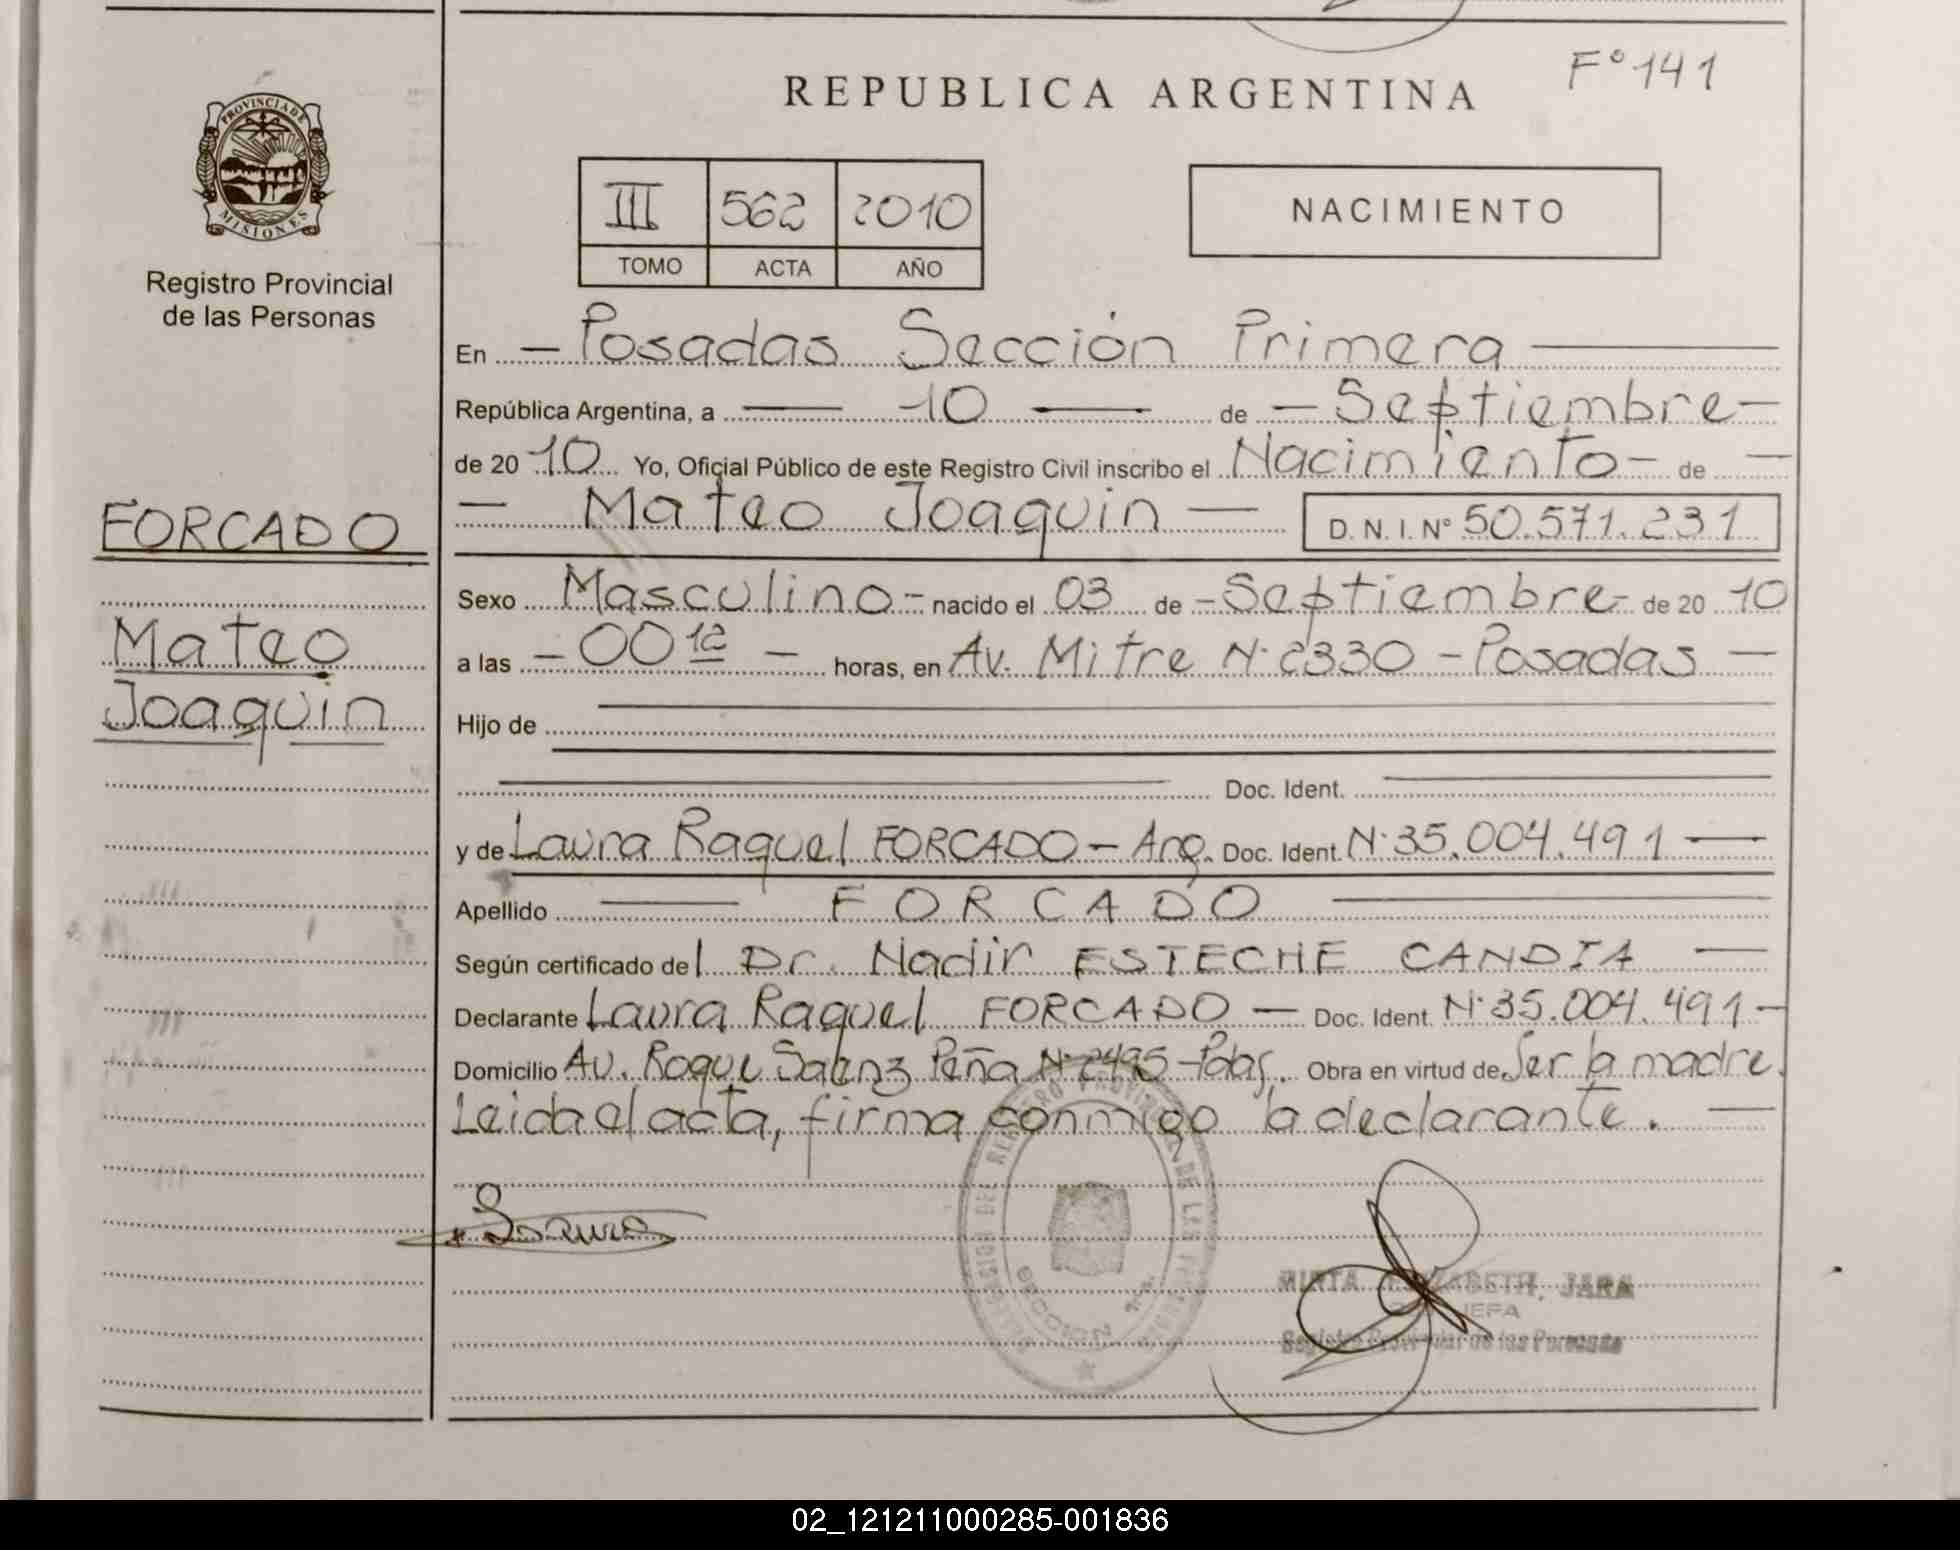 F° 141
REPUBLICA ARGENTINA
PROVINCIA DE
MISIONES
Registro Provincial
de las Personas
III 562 2010
TOMO ACTA AÑO
NACIMIENTO
En — Posadas Sección Primera —
República Argentina, a — 10 — de — Septiembre —
de 20 10 Yo, Oficial Público de este Registro Civil inscribo el Nacimiento — de —
— Mateo Joaquin — D. N. I. N° 50.571.231
FORCADO
Mateo
Joaquin
Sexo Masculino - nacido el 03 de - Septiembre - de 20 10
a las - 00 12 - horas, en Av. Mitre N° 2330 - Posadas —
Hijo de
Doc. Ident.
y de Laura Raquel FORCADO - Arg. Doc. Ident. N° 35.004.491 —
Apellido — FORCADO —
Según certificado del Dr. Nadir ESTECHE CANDIA —
Declarante Laura Raquel FORCADO — Doc. Ident. N° 35.004.491 -
Domicilio Av. Roque Saenz Peña N° 2495 - Pdas. Obra en virtud de Ser la madre.
Leida el acta, firma conmigo la declarante. —
SECCION 1ra.
JARA
JEFA
Registro Provincial de las Personas
02_121211000285-001836